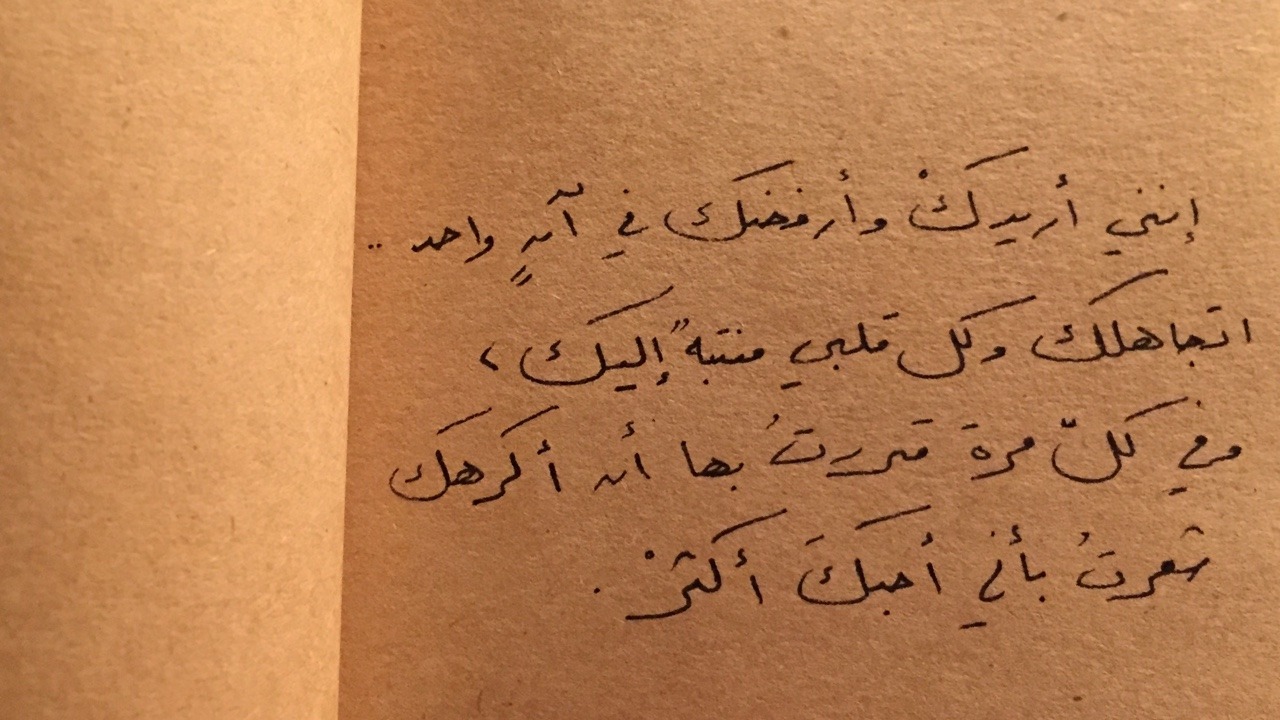 إنني أريدكْ وأرفضك في آنٍ واحد ..
اتجاهلك وكل قلبي منتبهٌ إليك ،
وفي كلّ مرة قررتُ بها أن أكرهك
شعرتُ بأني أحبكَ أكثرْ .